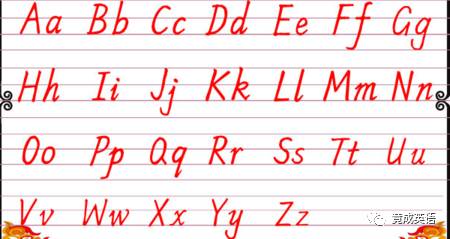 Aa Bb Cc Dd Ee Ff Gg
Hh Ii Jj Kk Ll Mm Nn
Oo Pp Qq Rr Ss Tt Uu
Vv Ww Xx Yy Zz
竟成英语